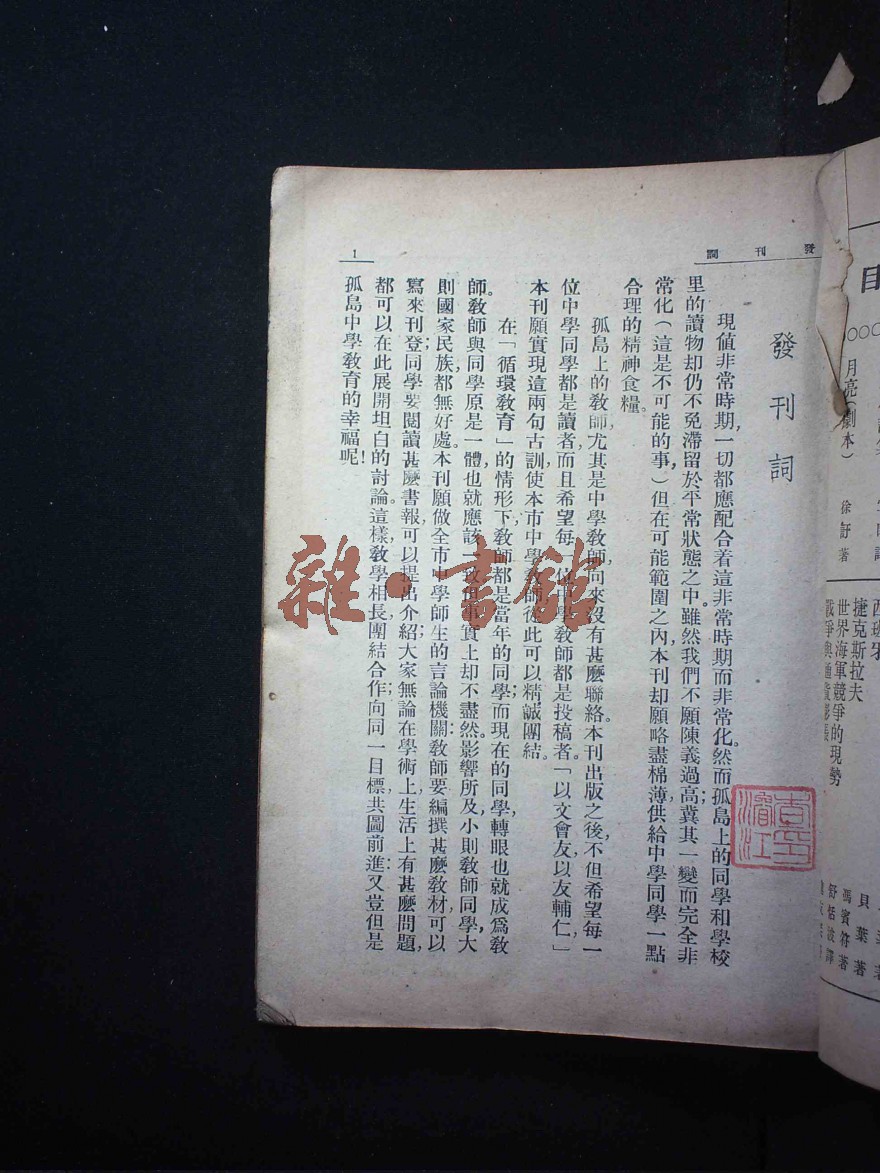 發刊詞
發刊詞
現值非常時期,一切都應配合着這非常時期而非常化。然而孤島上的同學和學校
里的讀物却仍不免滯留於平常狀態之中。雖然我們不願陳義過高,冀其一變而完全非
常化(這是不可能的事),但在可能範圍之內,本刊却願略盡棉薄,供給中學同學一點
合理的精神食糧。
孤島上的教師,尤其是中學教師,向來沒有甚麼聯絡。本刊出版之後,不但希望每一
位中學同學都是讀者,而且希望每一位中學教師都是投稿者。「以文會友,以友輔仁,」
本刊願實現這兩句古訓,使本市中學教師從此可以精誠團結。
在「循環教育」的情形下,教師都是當年的同學;而現在的同學,轉眼也就成爲教
師。教師與同學原是一體,也就應該一致,但事實上却不盡然。影響所及,小則教師同學,大
則國家民族,都無好處。本刊願做全市中學師生的言論機關:教師要編撰甚麼教材,可以
寫來刊登;同學要閱讀甚麼書報,可以提出介紹;大家無論在學術上生活上有甚麼問題,
都可以在此展開坦白的討論。這樣教學相長,團結合作,向同一目標,共圖前進:又豈但是
孤島中學教育的幸福呢!
1
雜·書館
月亮(劇本) 徐訏著
西班牙
捷克斯拉夫 貝葉著
世界海軍競爭的現勢 馮賓符著
舒恬波譯